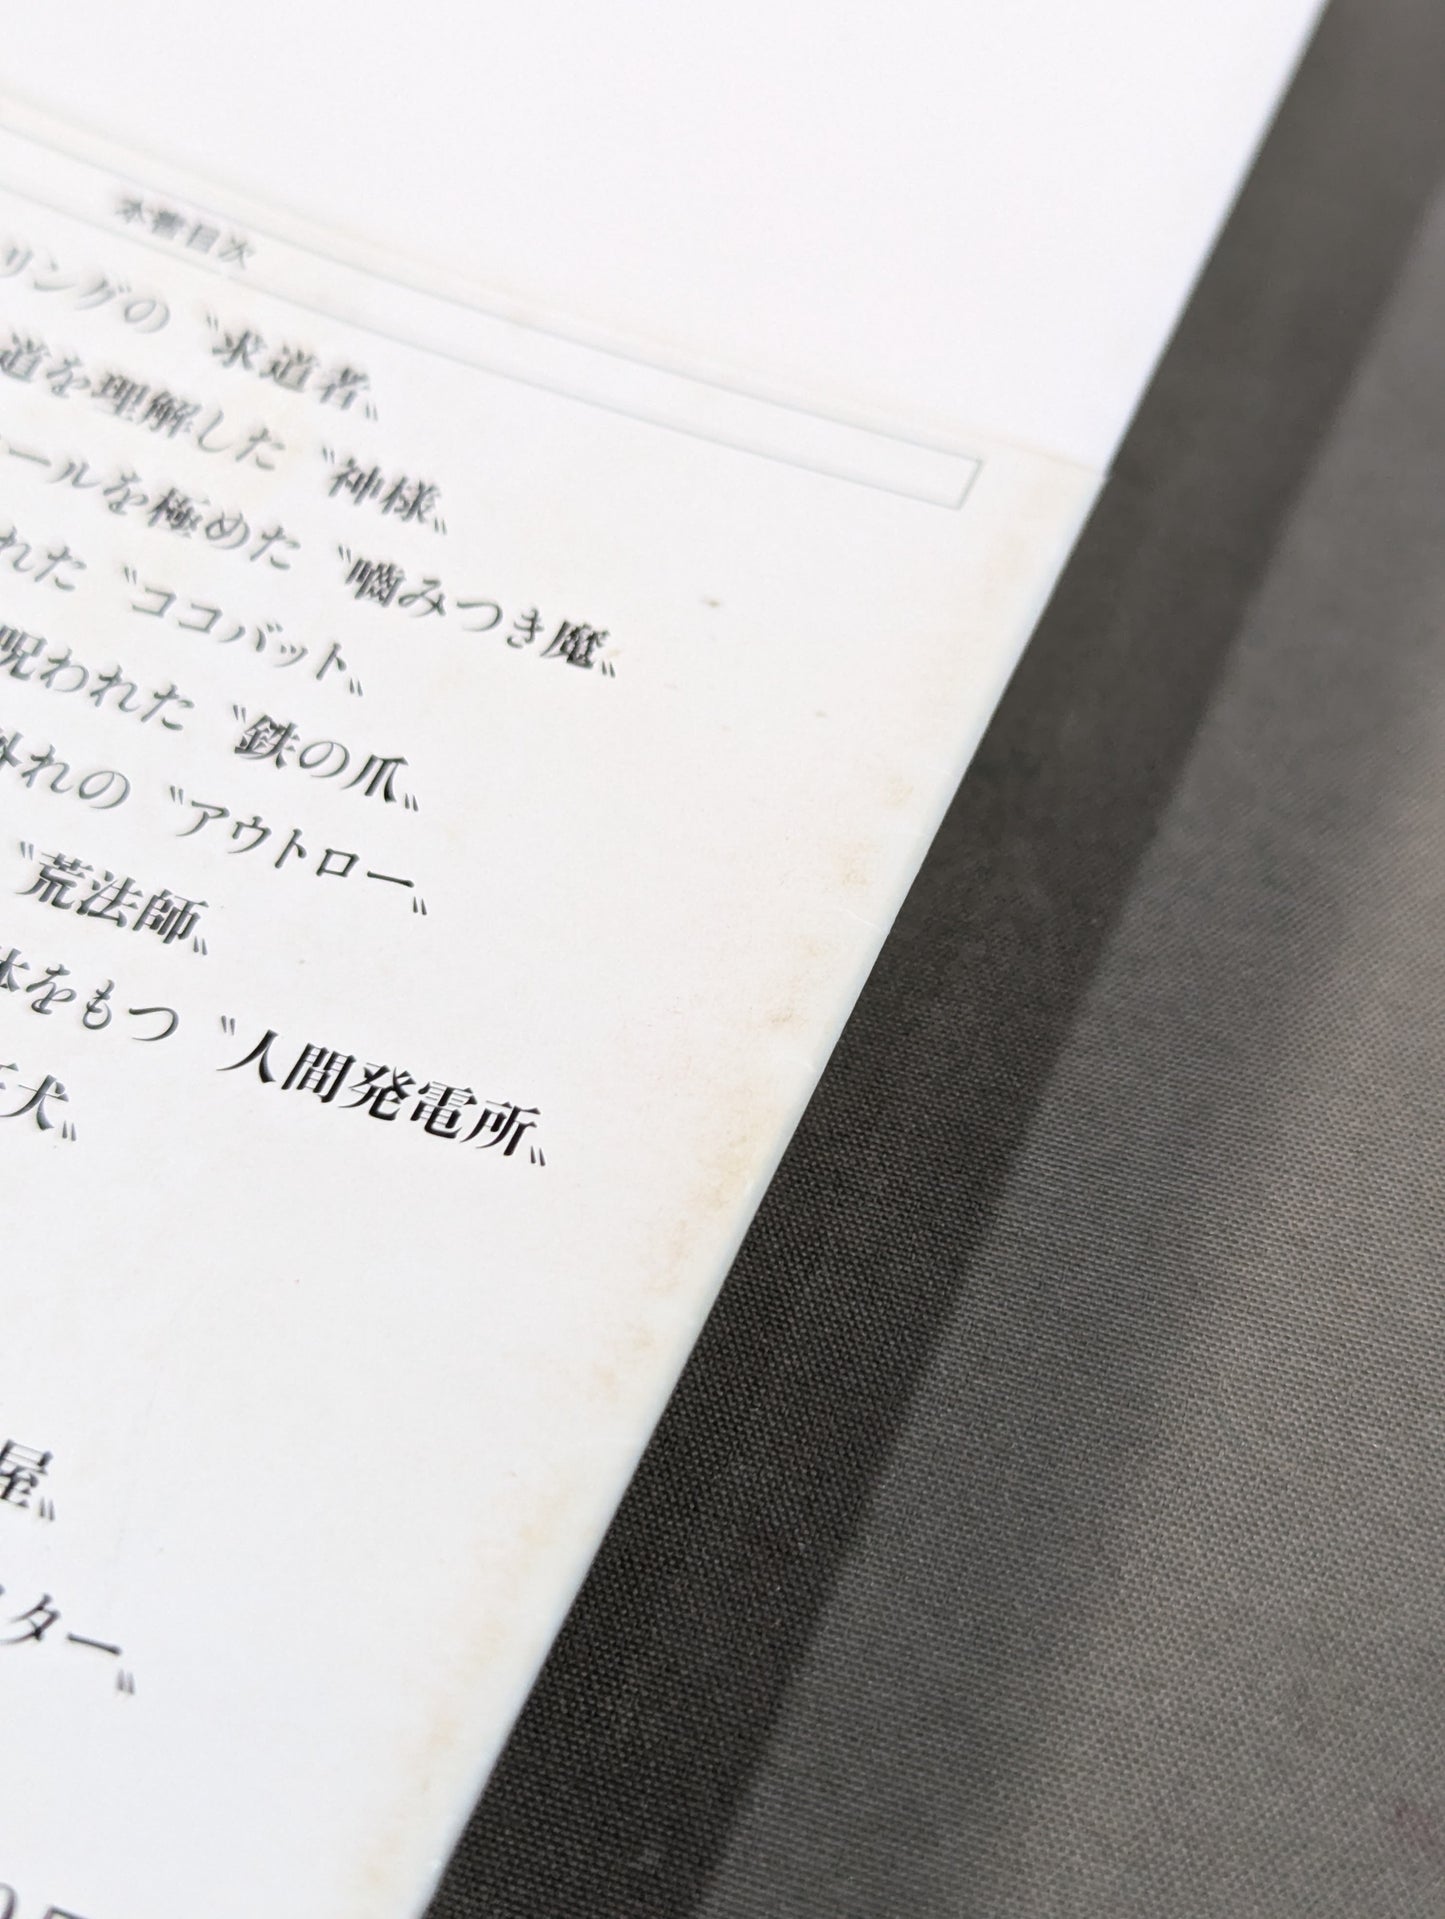 本書目次
リングの〝求道者〟
道を理解した〝神様〟
ールを極めた〝嚙みつき魔〟
れた〝ココバット〟
呪われた〝鉄の爪〟
外れの〝アウトロー〟
〝荒法師〟
体をもつ〝人間発電所〟
狂犬〟
屋〟
スター〟